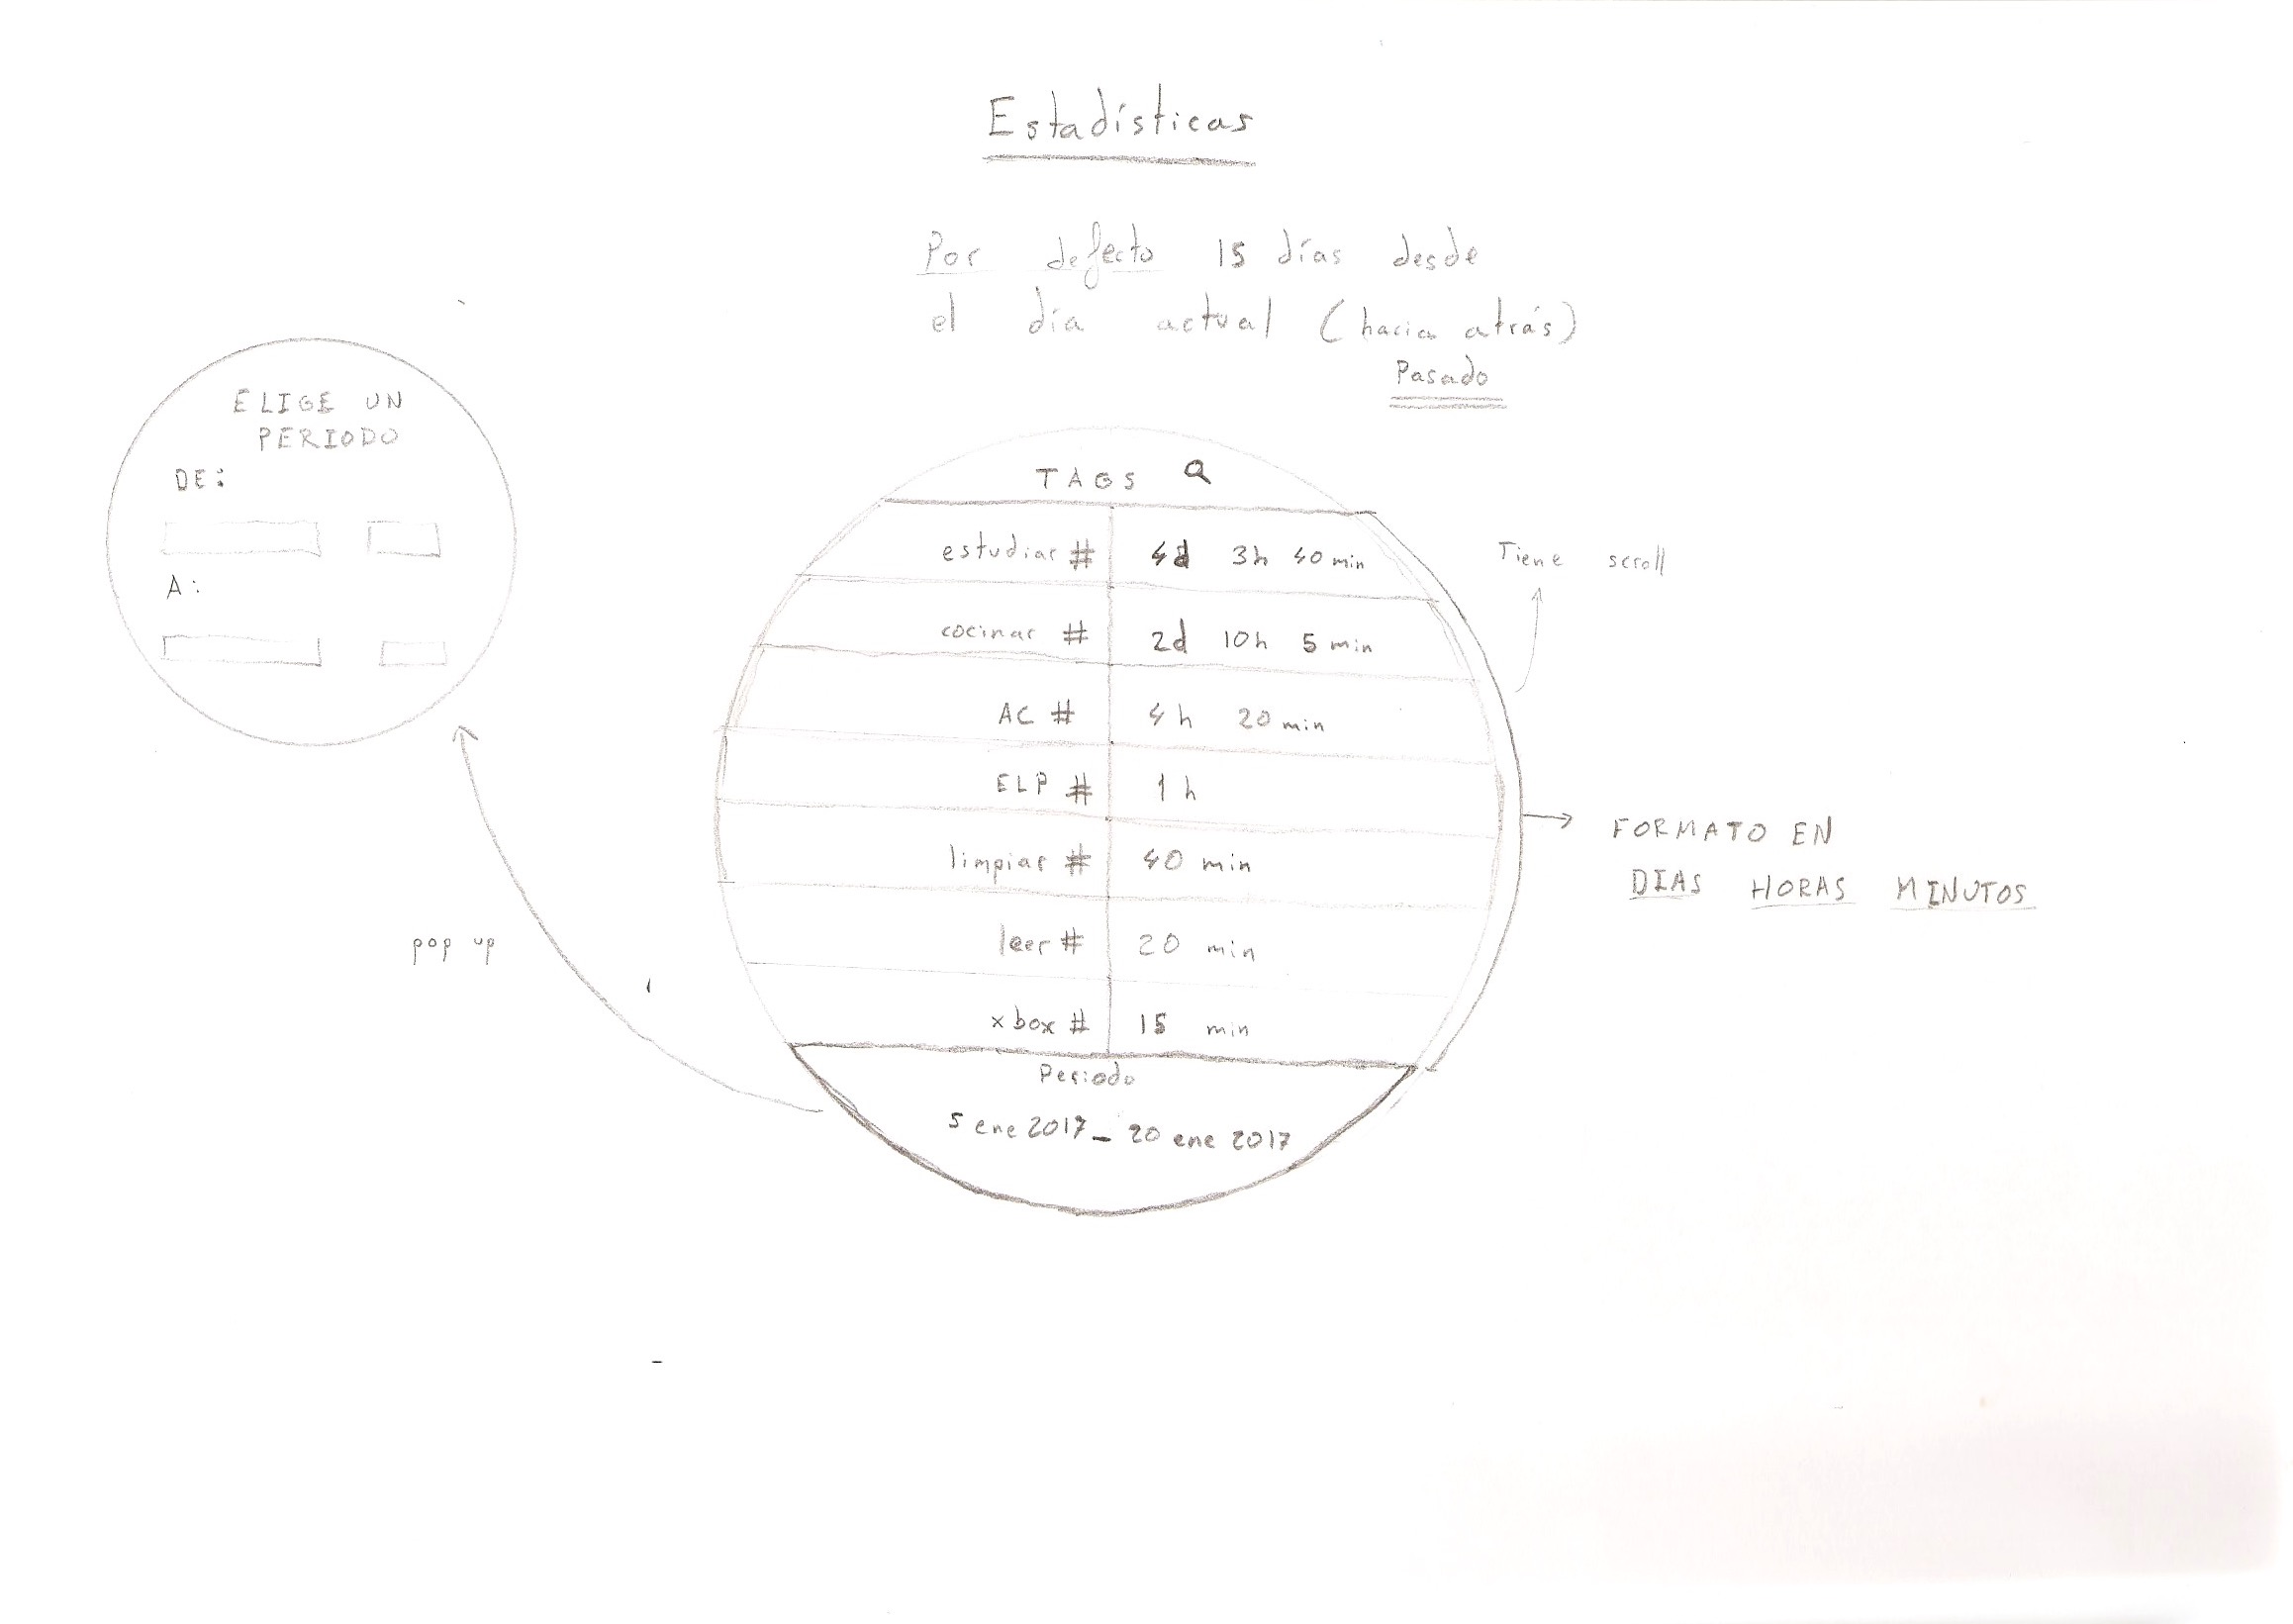 Estadísticas
Por defecto 15 días desde
el día actual (hacia atrás)
Pasado
ELIGE UN
PERIODO
DE:
A:
pop up
TAGS
estudiar # 4d 3h 40 min
cocinar # 2d 10h 5 min
AC # 4h 20 min
ELP # 1h
limpiar # 40 min
leer # 20 min
xbox # 15 min
Periodo
5 ene 2017 - 20 ene 2017
Tiene scroll
FORMATO EN
DIAS HORAS MINUTOS